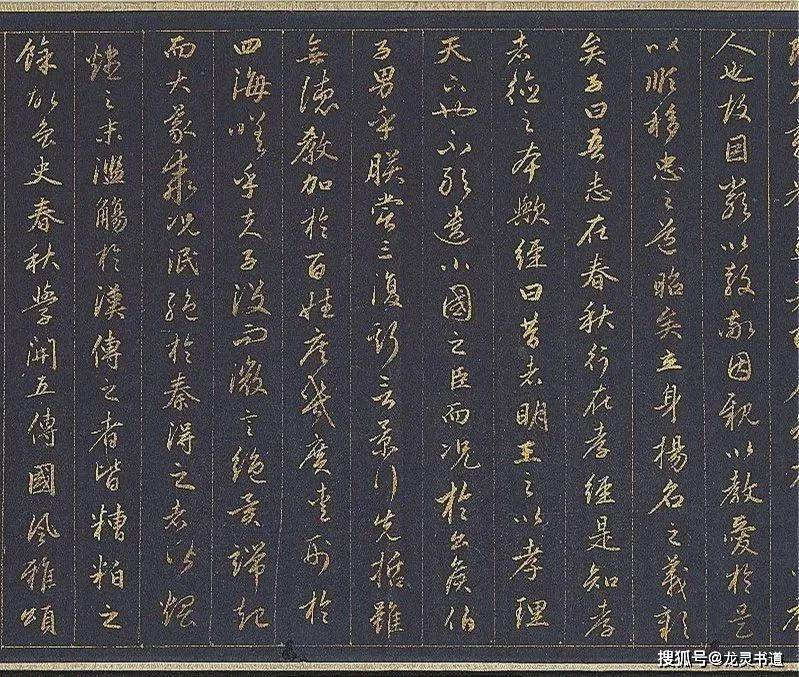 人也故因嚴以教敬因親以教愛於是
以順移忠之道昭矣立身揚名之義彰
矣子曰吾志在春秋行在孝經是知孝
者德之本歟經曰昔者明王之以孝理
天下也不敢遺小國之臣而況於公侯伯
子男乎朕嘗三復斯言景行先哲雖
無德教加於百姓庶幾廣愛刑於
四海嗟乎夫子沒而微言絕異端起
而大義乖況泯絕於秦得之者皆煨
燼之末濫觴於漢傳之者皆糟粕之
餘故魯史春秋學開五傳國風雅頌
搜狐号@龙灵书道